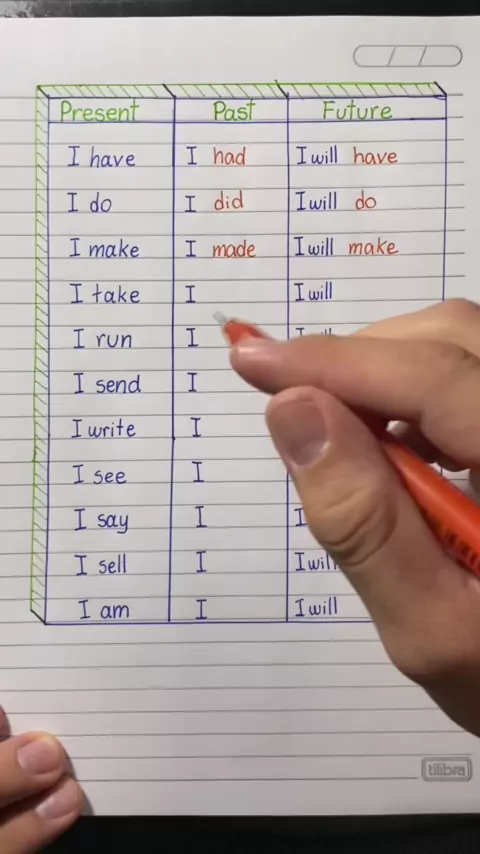 Present Past Future
I have I had I will have
I do I did I will do
I make I made I will make
I take I I will
I run I
I send I
I write I
I see I
I say I I
I sell I I will
I am I I will
tilibra